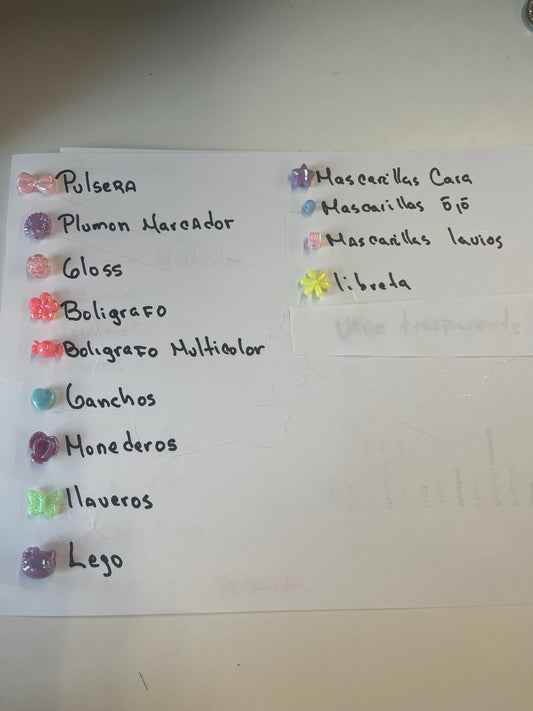 Pulsera
Plumon Marcador
Gloss
Boligrafo
Boligrafo Multicolor
Ganchos
Monederos
llaveros
Lego
Mascarillas Cara
Mascarillas ojo
Mascarillas lavios
libreta